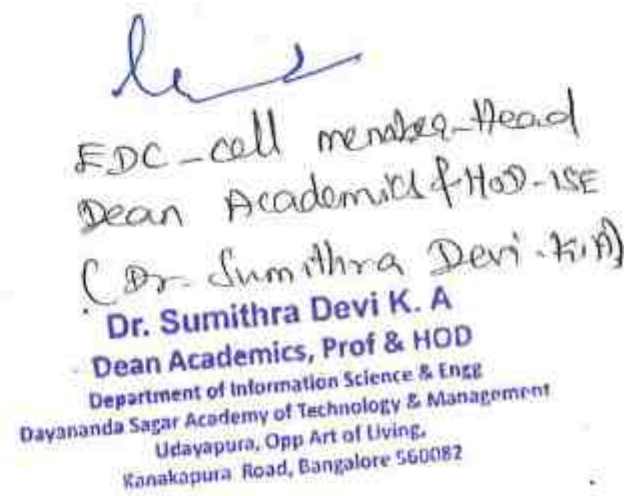 EDC-cell member-Head
Dean Academics & HOD-ISE
(Dr. Sumithra Devi. K.A)
Dr. Sumithra Devi K. A
Dean Academics, Prof & HOD
Department of Information Science & Engg
Dayananda Sagar Academy of Technology & Management
Udayapura, Opp Art of Living,
Kanakapura Road, Bangalore 560082